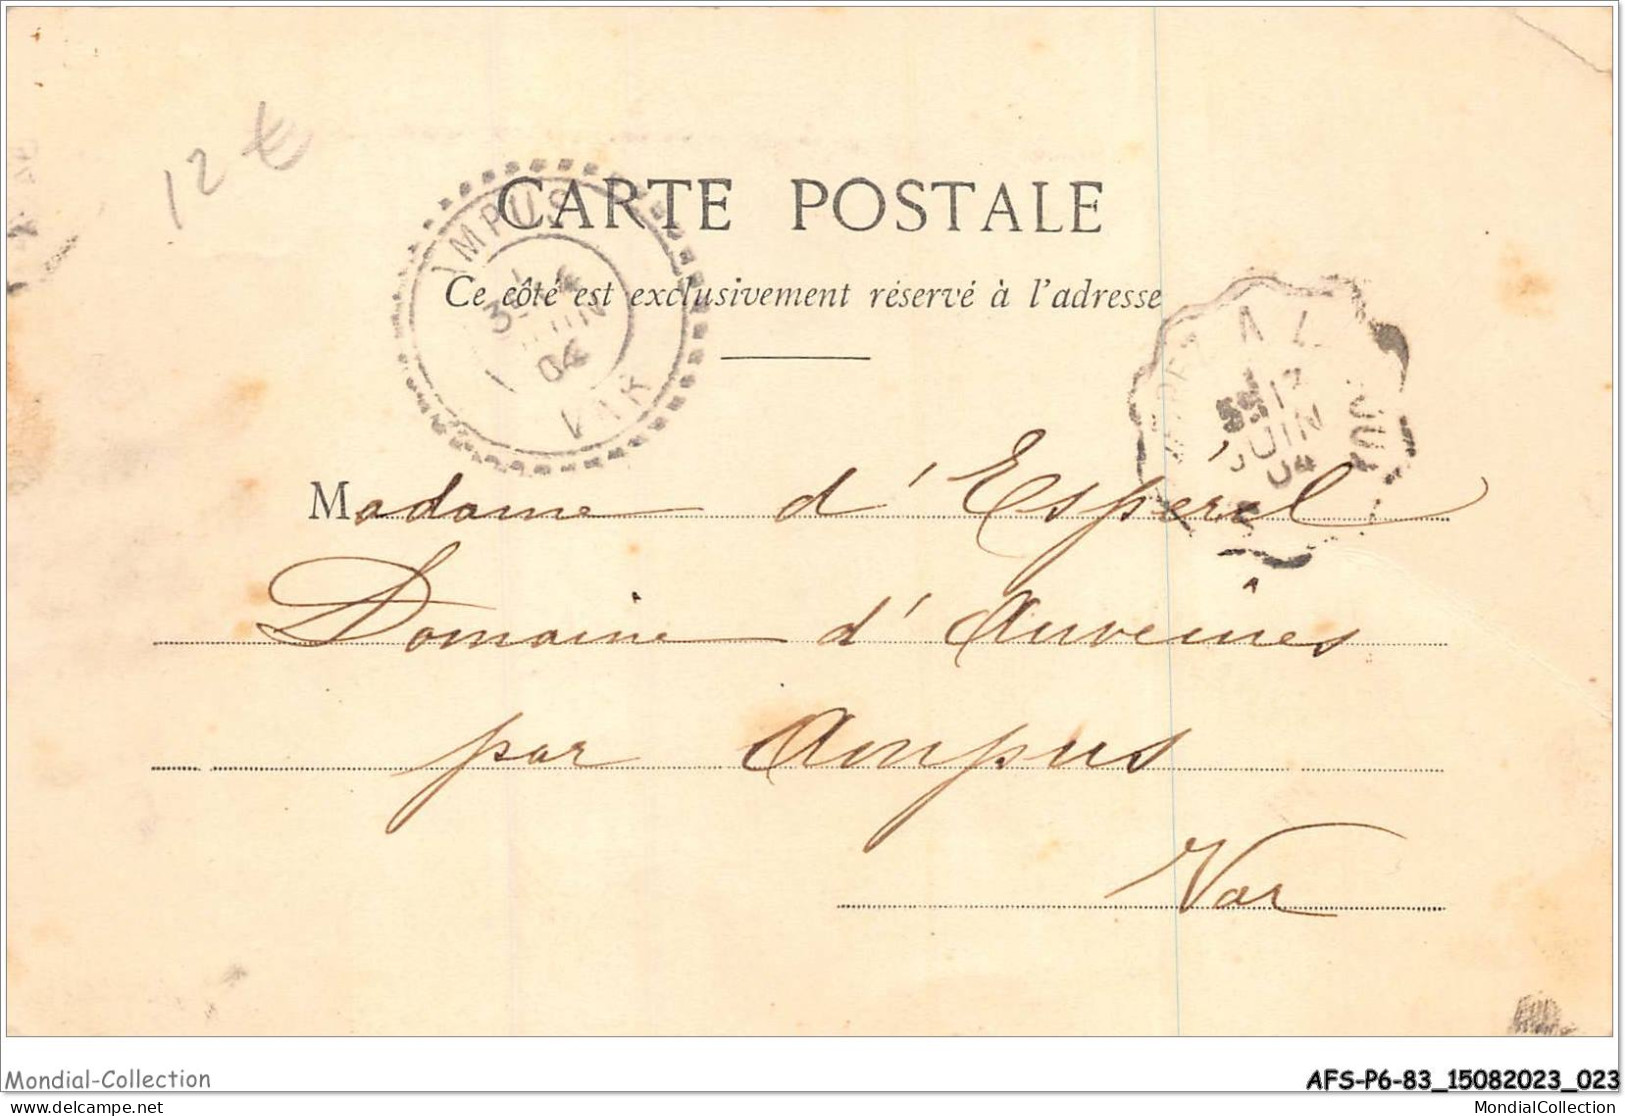 12 €
CARTE POSTALE
Ce côté est exclusivement réservé à l'adresse
AMPUS
JUIN
04
VAR
JUIN
04
Madame d'Espérel
Domaine d'Auveines
par Ampus
Var
Mondial-Collection
AFS-P6-83_15082023_023
delcampe.net
MondialCollection